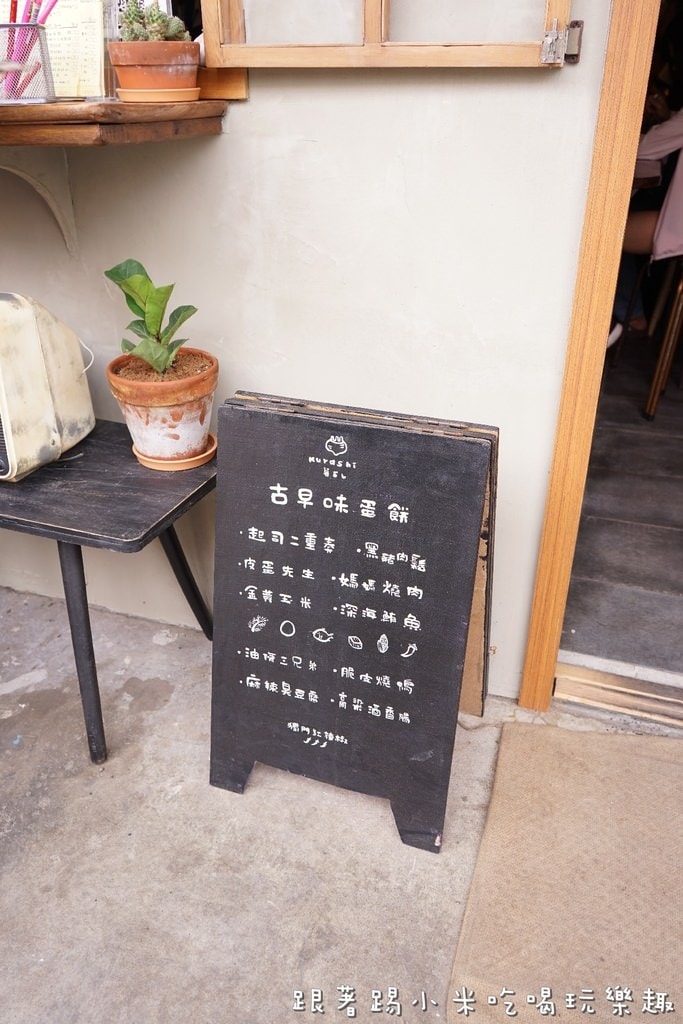 kurashi
古早味蛋餅
·起司二重奏 ·黑豬肉鬆
·皮蛋先生 ·媽媽燒肉
·金黃玉米 ·深海鮪魚
·油條三兄弟 ·脆皮燒鴨
·麻辣臭豆腐 ·高梁酒香腸
獨門紅辣椒
跟著踢小米吃喝玩樂趣